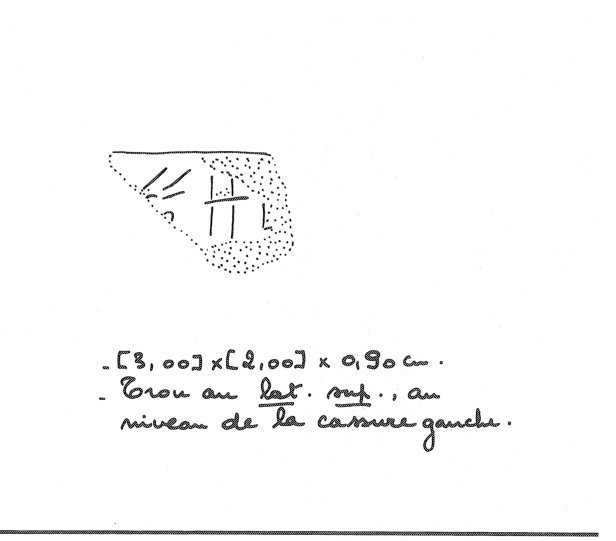 - [3,00] x [2,00] x 0,90 cm.
- Trou au lat. sup., au
niveau de la cassure gauche.